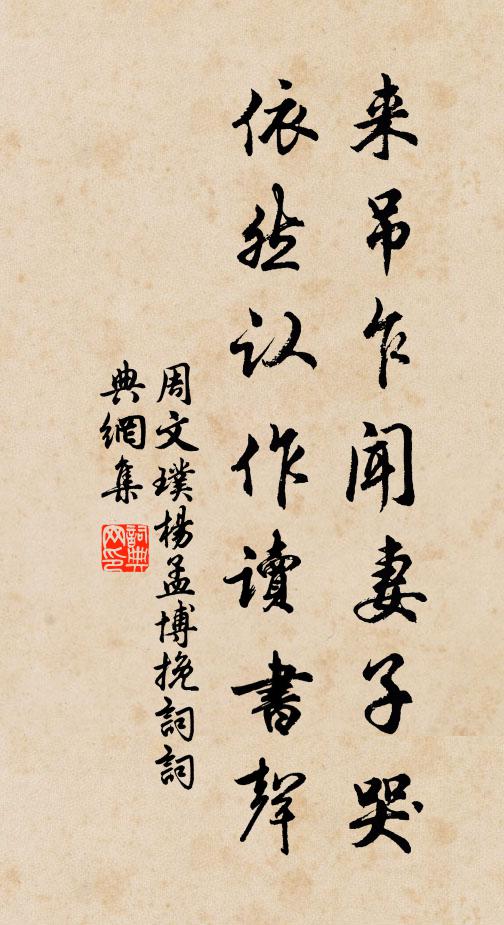 来吊乍闻妻子哭
依然认作讀書聲
周文璞楊孟博挽詞詞
典網集
詞典網印